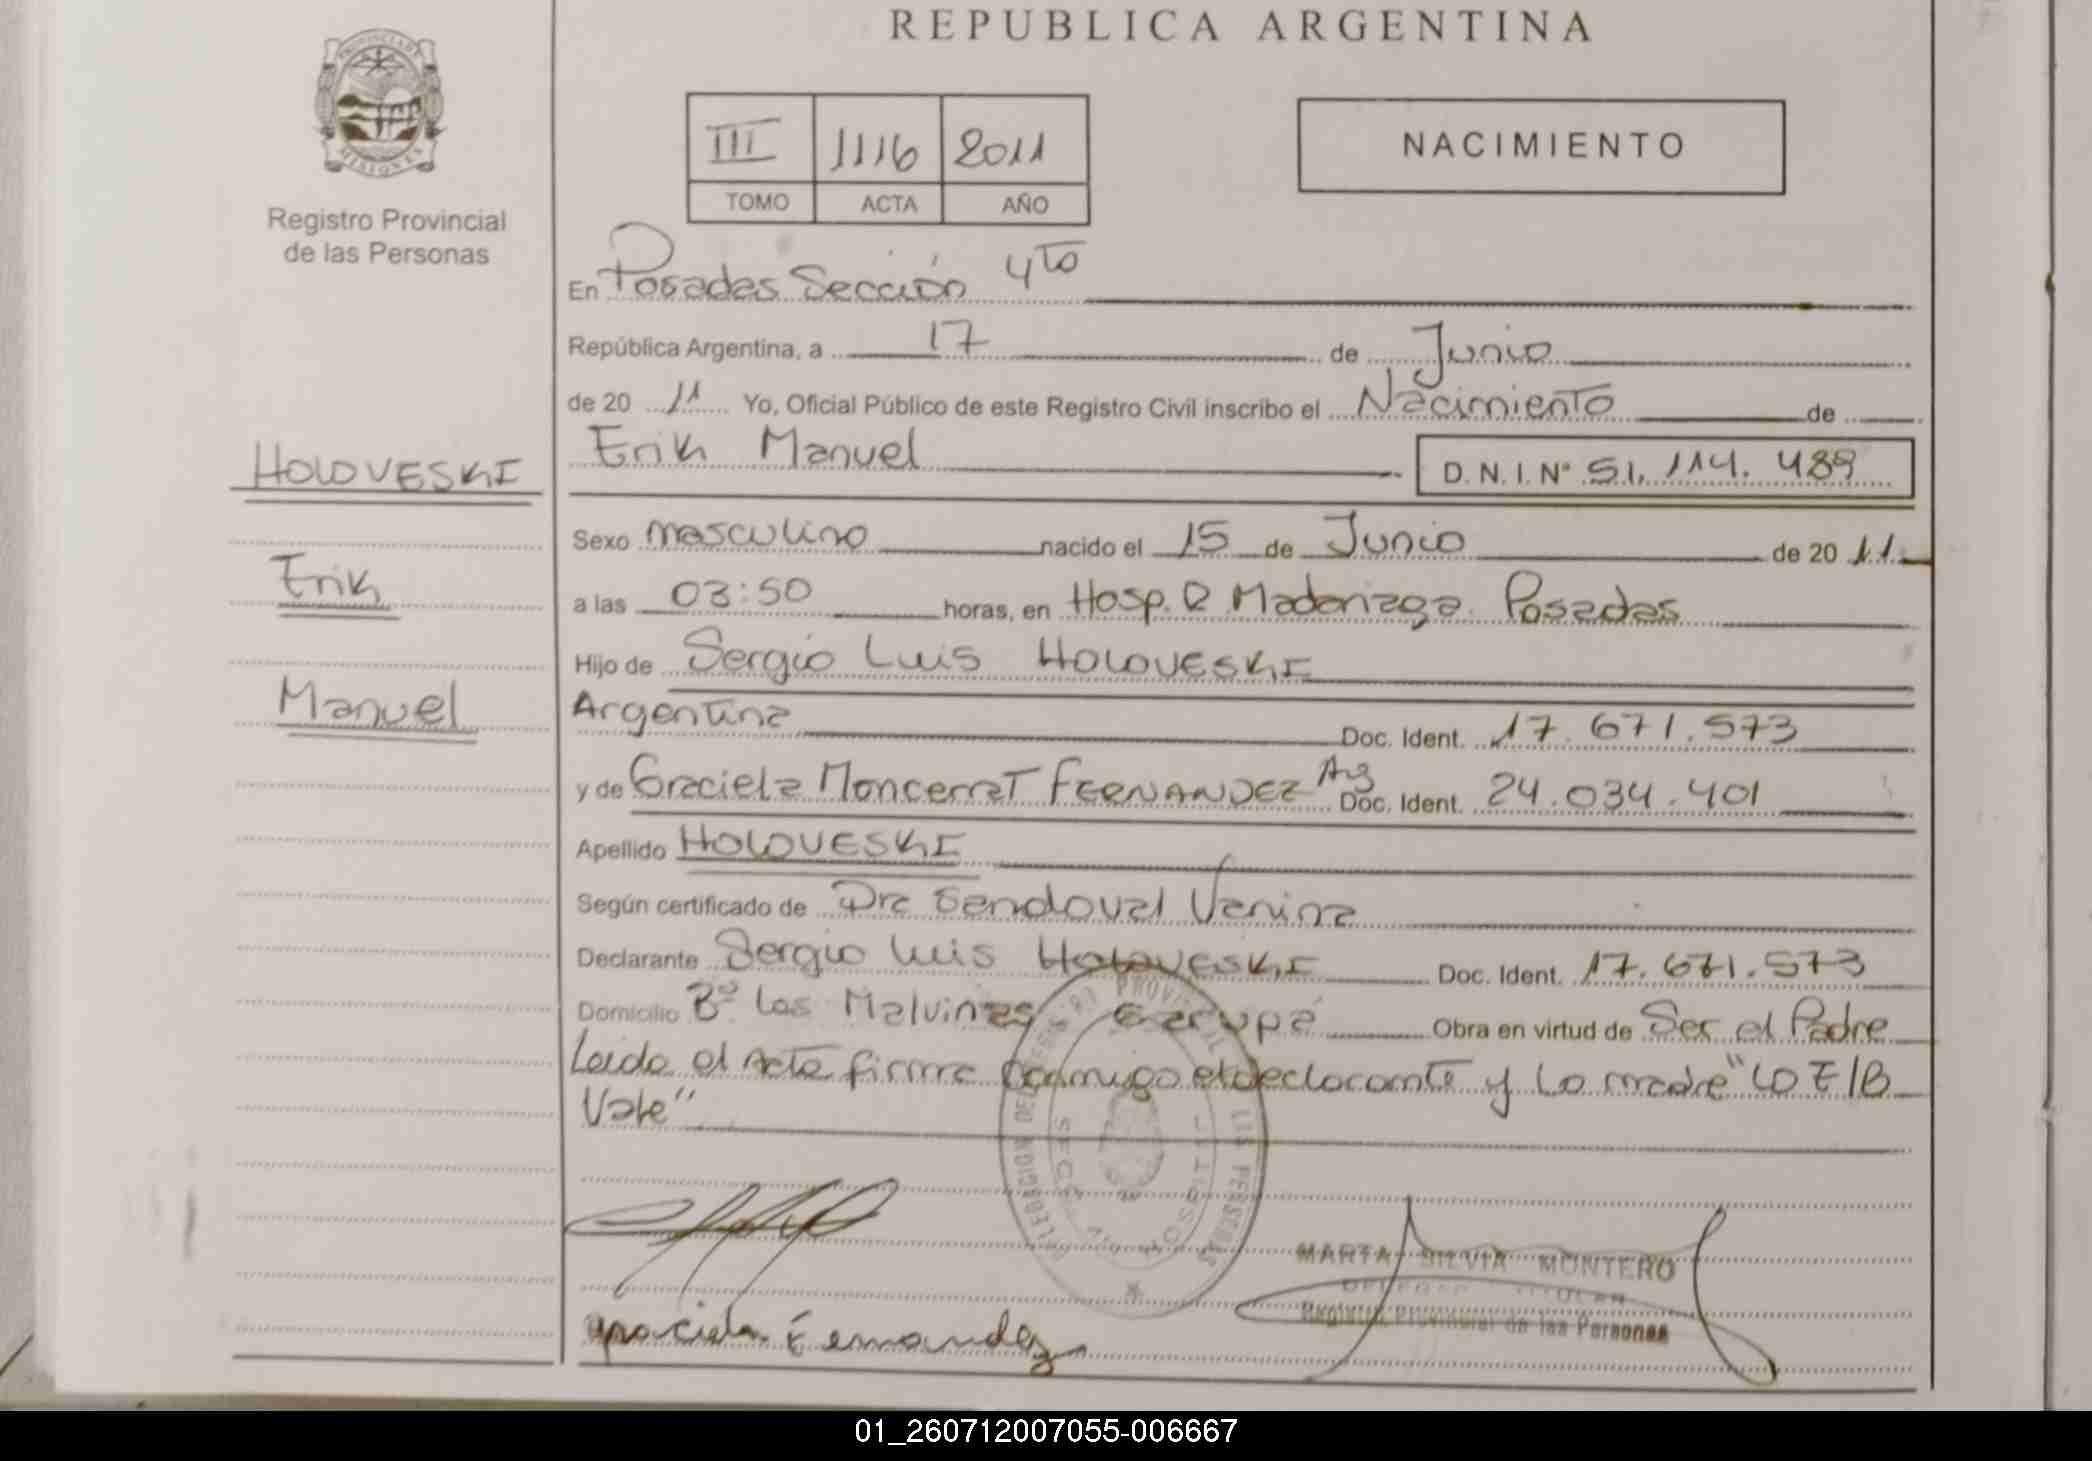 REPUBLICA ARGENTINA
PROVINCIA DE
MISIONES
Registro Provincial
de las Personas
III 1116 2011
TOMO ACTA AÑO
NACIMIENTO
En Posadas Sección 4to
República Argentina, a 17 de Junio
de 20 11 Yo, Oficial Público de este Registro Civil inscribo el Nacimiento de
Erik Manuel
D.N.I. Nº 51.114.489
HOLOVESKI
Erik
Manuel
Sexo masculino nacido el 15 de Junio de 20 11
a las 03:50 horas, en Hosp. R Madariaga Posadas
Hijo de Sergio Luis HOLOVESKI
Argentina Doc. Ident. 17.671.573
y de Graciela Moncerrat FERNANDEZ Arg Doc. Ident. 24.034.401
Apellido HOLOVESKI
Según certificado de Dra Sandoval Vanina
Declarante Sergio Luis HOLOVESKI Doc. Ident. 17.671.573
Domicilio Bº Las Malvinas Garupá Obra en virtud de Ser el Padre
Leida el Acta firma conmigo el declarante y la madre "LO E/B
Vale"
PROVINCIAL
SECC
HOSPITAL
MARTA SILVIA MONTERO
Registro Provincial de las Personas
Graciela Fernandez
01_260712007055-006667